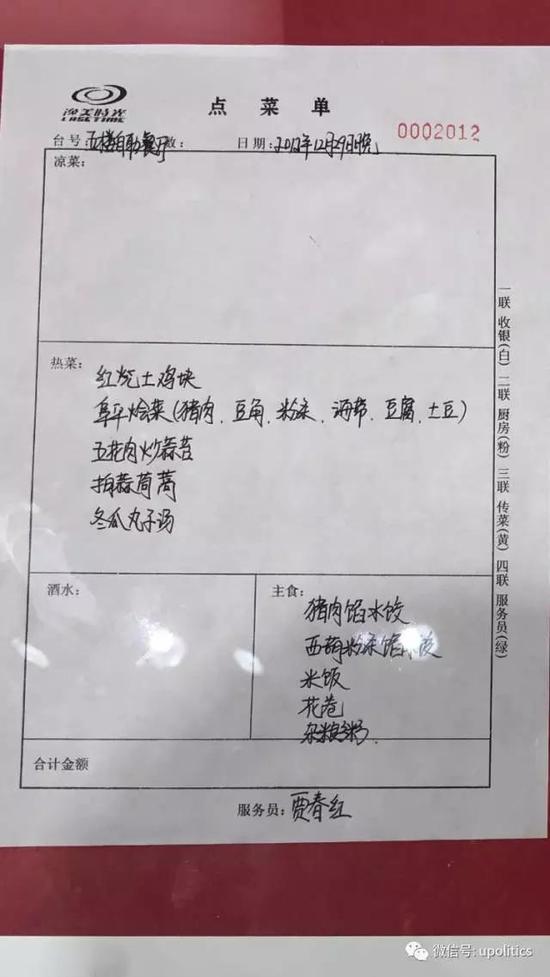 渔美时光
LASETIME
点菜单
0002012
台号: 五楼自助餐厅 数:
日期: 2012年12月29日晚
凉菜:
热菜:
红烧土鸡块
阜平烩菜(猪肉、豆角、粉条、海带、豆腐、土豆)
五花肉炒蒜苔
拍蒜茼蒿
冬瓜丸子汤
酒水:
主食:
猪肉馅水饺
西葫粉条馅水饺
米饭
花卷
杂粮粥
合计金额
服务员: 贾春红
一联 收银(白) 二联 厨房(粉) 三联 传菜(黄) 四联 服务员(绿)
微信号: upolitics